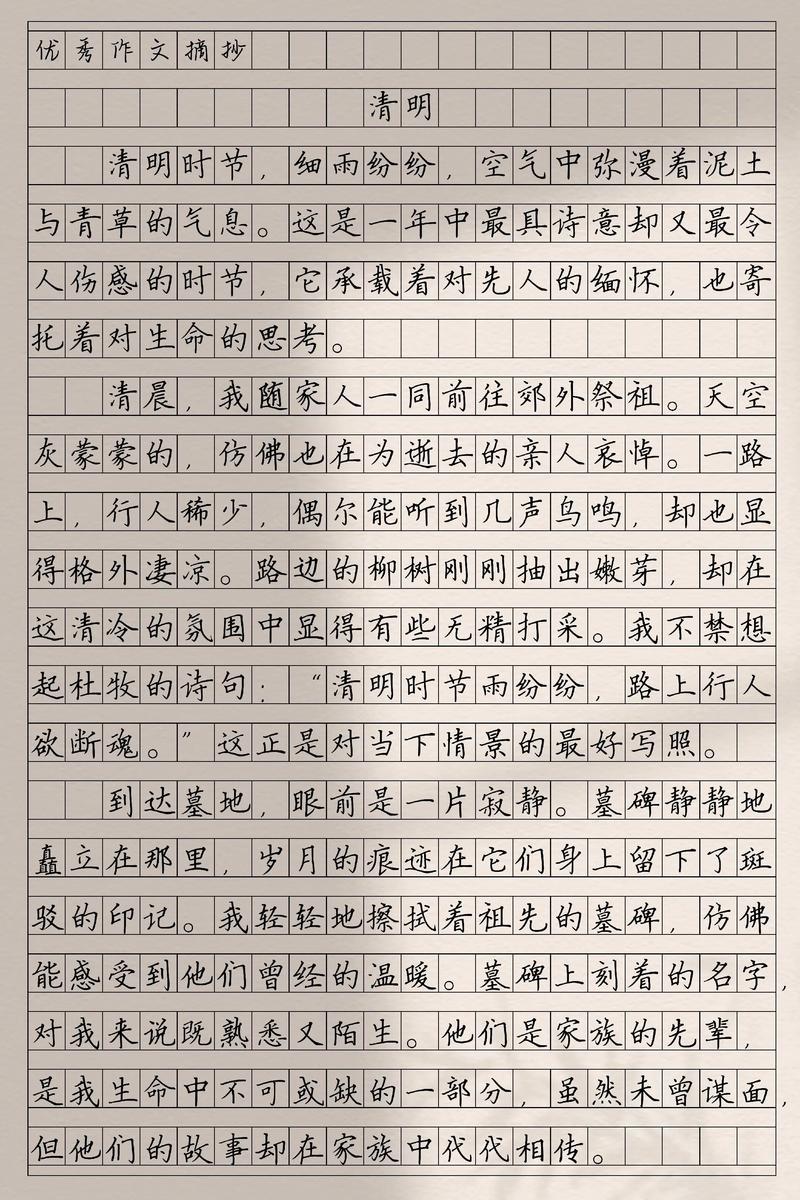 优秀作文摘抄
清明
清明时节，细雨纷纷，空气中弥漫着泥土
与青草的气息。这是一年中最具诗意却又最令
人伤感的时节，它承载着对先人的缅怀，也寄
托着对生命的思考。
清晨，我随家人一同前往郊外祭祖。天空
灰蒙蒙的，仿佛也在为逝去的亲人哀悼。一路
上，行人稀少，偶尔能听到几声鸟鸣，却也显
得格外凄凉。路边的柳树刚刚抽出嫩芽，却在
这清冷的氛围中显得有些无精打采。我不禁想
起杜牧的诗句：“清明时节雨纷纷，路上行人
欲断魂。”这正是对当下情景的最好写照。
到达墓地，眼前是一片寂静。墓碑静静地
矗立在那里，岁月的痕迹在它们身上留下了斑
驳的印记。我轻轻地擦拭着祖先的墓碑，仿佛
能感受到他们曾经的温暖。墓碑上刻着的名字，
对我来说既熟悉又陌生。他们是家族的先辈，
是我生命中不可或缺的一部分，虽然未曾谋面，
但他们的故事却在家族中代代相传。